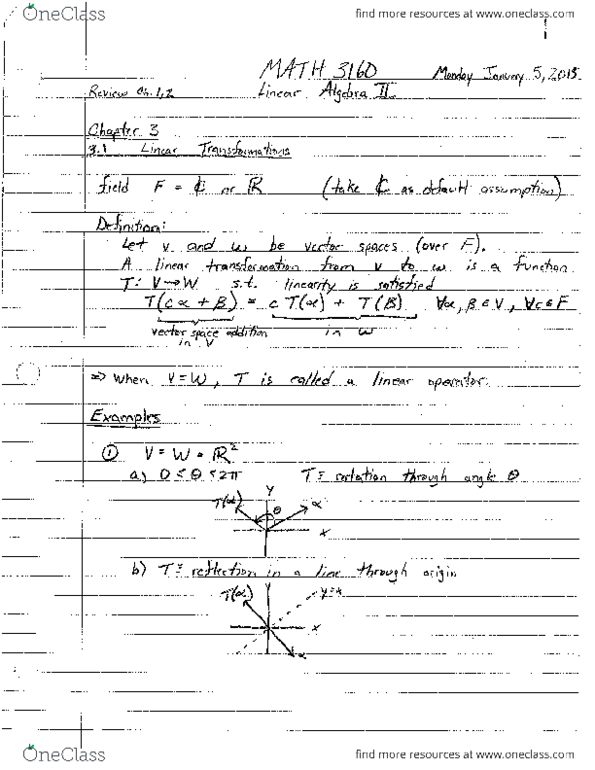 OneClass find more resources at www.oneclass.com
1
MATH 3160 Monday January 5, 2015
Review Ch. 1,2 Linear Algebra II
Chapter 3
3.1 Linear Transformations
field F = ℂ or ℝ (take ℂ as default assumption)
Definition:
Let V and W be vector spaces (over F).
A linear transformation from V to W is a function
T: V→W s.t. linearity is satisfied
T(cα + β) = c T(α) + T(β) ∀α, β ∈ V, ∀c ∈ F
vector space addition in W
in V
⇒ when V=W, T is called a linear operator.
Examples
① V = W = ℝ²
a) 0 ≤ θ ≤ 2π T ≡ rotation through angle θ
T(α) y θ α
x
b) T ≡ reflection in a line through origin
T(α) y y=x
x
α
OneClass find more resources at www.oneclass.com